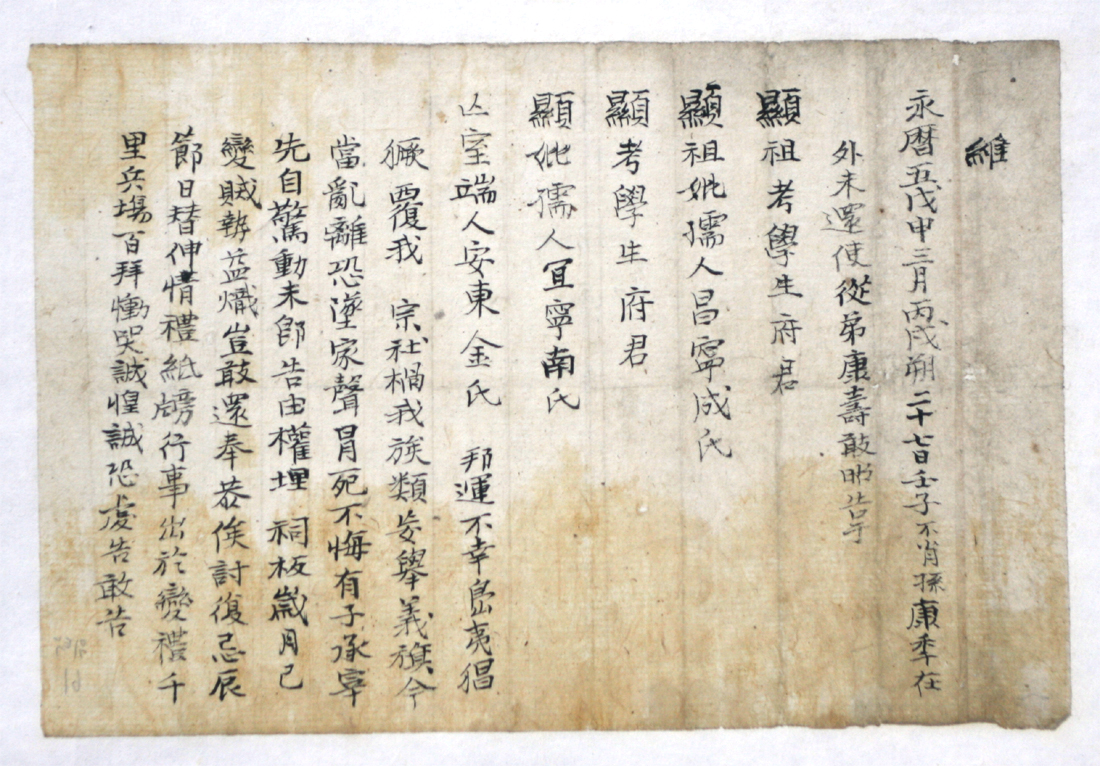 維
永曆五戊申三月丙戌朔二十七日壬子不肖孫康季在
外未還使從弟康壽敢昭告于
顯祖考學生府君
顯祖妣孺人昌寧成氏
顯考學生府君
顯妣孺人宜寧南氏
亡室端人安東金氏 邦運不幸島夷猖
獗覆我 宗社禍我族類妄擧義旗今
當亂離恐墜家聲冒死不悔有子承宰
先自驚動未卽告由權埋 祠板歲月已
變賊勢益熾豈敢還奉恭俟討復忌辰
節日替伸情禮紙牓行事出於變禮千
里兵場百拜慟哭誠惶誠恐虔告敢告